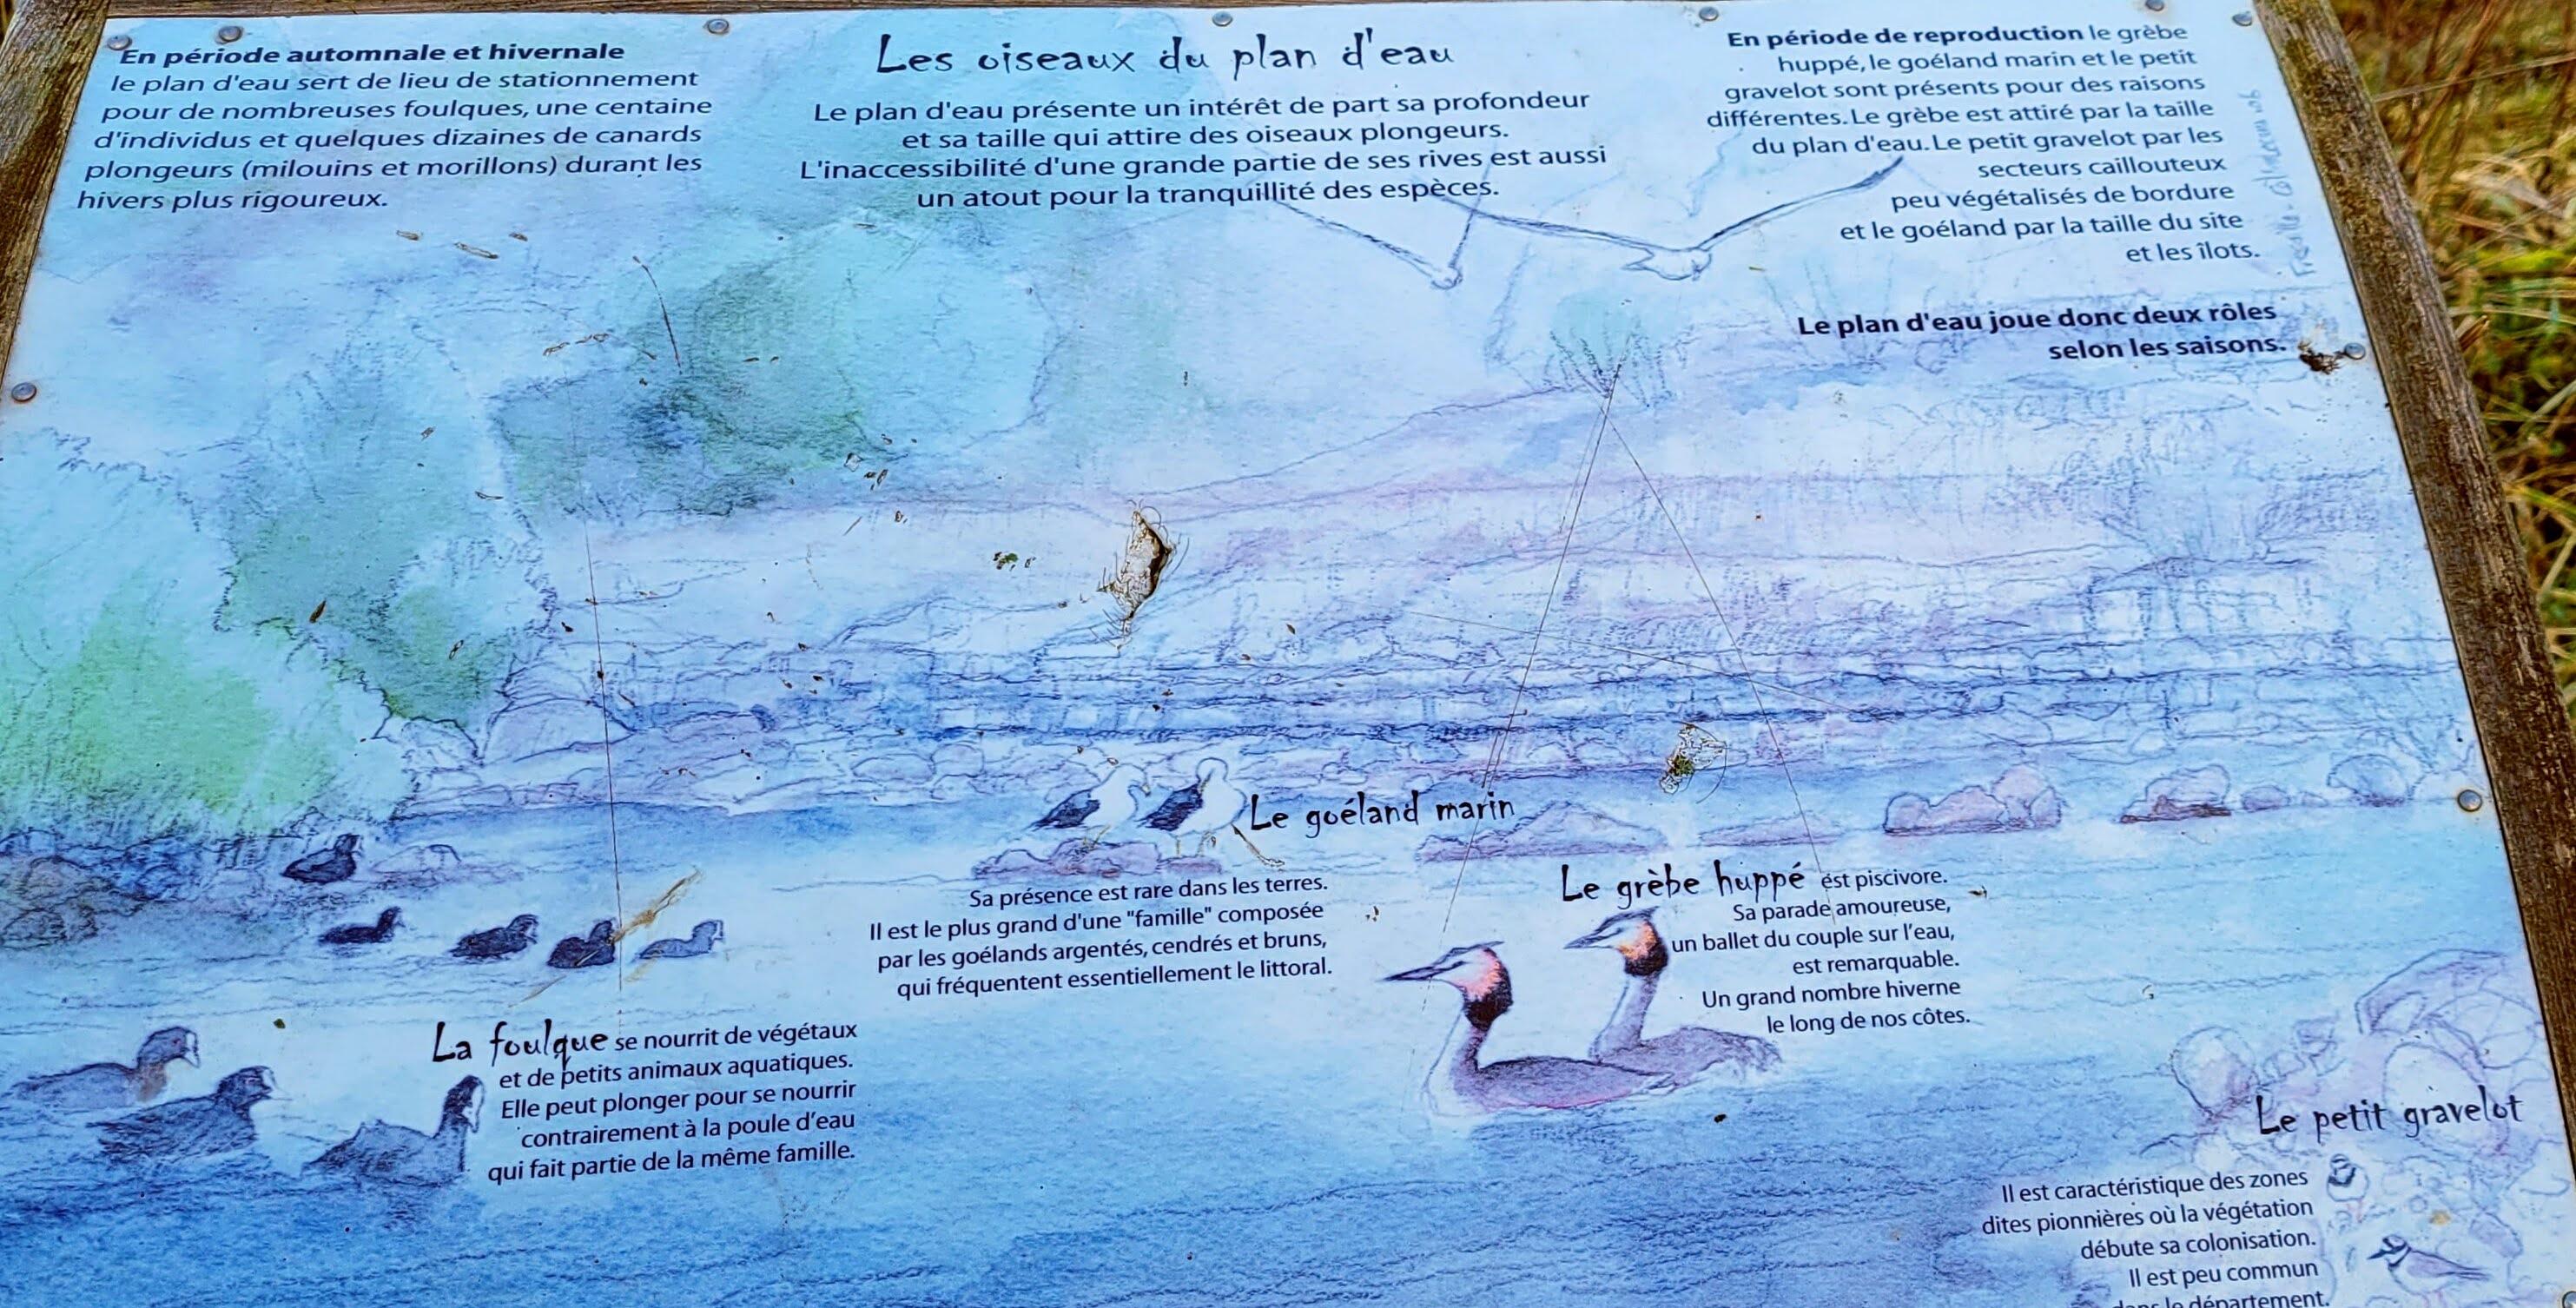 En période automnale et hivernale
le plan d'eau sert de lieu de stationnement
pour de nombreuses foulques, une centaine
d'individus et quelques dizaines de canards
plongeurs (milouins et morillons) durant les
hivers plus rigoureux.
Les oiseaux du plan d'eau
Le plan d'eau présente un intérêt de part sa profondeur
et sa taille qui attire des oiseaux plongeurs.
L'inaccessibilité d'une grande partie de ses rives est aussi
un atout pour la tranquillité des espèces.
En période de reproduction le grèbe
huppé, le goéland marin et le petit
gravelot sont présents pour des raisons
différentes. Le grèbe est attiré par la taille
du plan d'eau. Le petit gravelot par les
secteurs caillouteux
peu végétalisés de bordure
et le goéland par la taille du site
et les îlots.
Le plan d'eau joue donc deux rôles
selon les saisons.
Le goéland marin
Sa présence est rare dans les terres.
Il est le plus grand d'une "famille" composée
par les goélands argentés, cendrés et bruns,
qui fréquentent essentiellement le littoral.
Le grèbe huppé est piscivore.
Sa parade amoureuse,
un ballet du couple sur l'eau,
est remarquable.
Un grand nombre hiverne
le long de nos côtes.
La foulque se nourrit de végétaux
et de petits animaux aquatiques.
Elle peut plonger pour se nourrir
contrairement à la poule d'eau
qui fait partie de la même famille.
Le petit gravelot
Il est caractéristique des zones
dites pionnières où la végétation
débute sa colonisation.
Il est peu commun
dans le département.